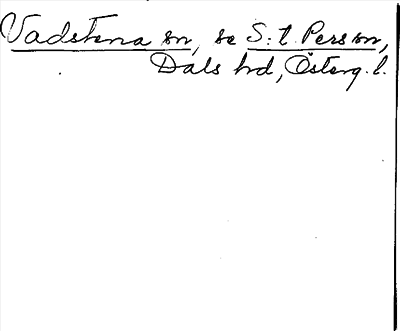 Vadstena sn, se S:t Pers sn,
Dals hd, Österg. l.